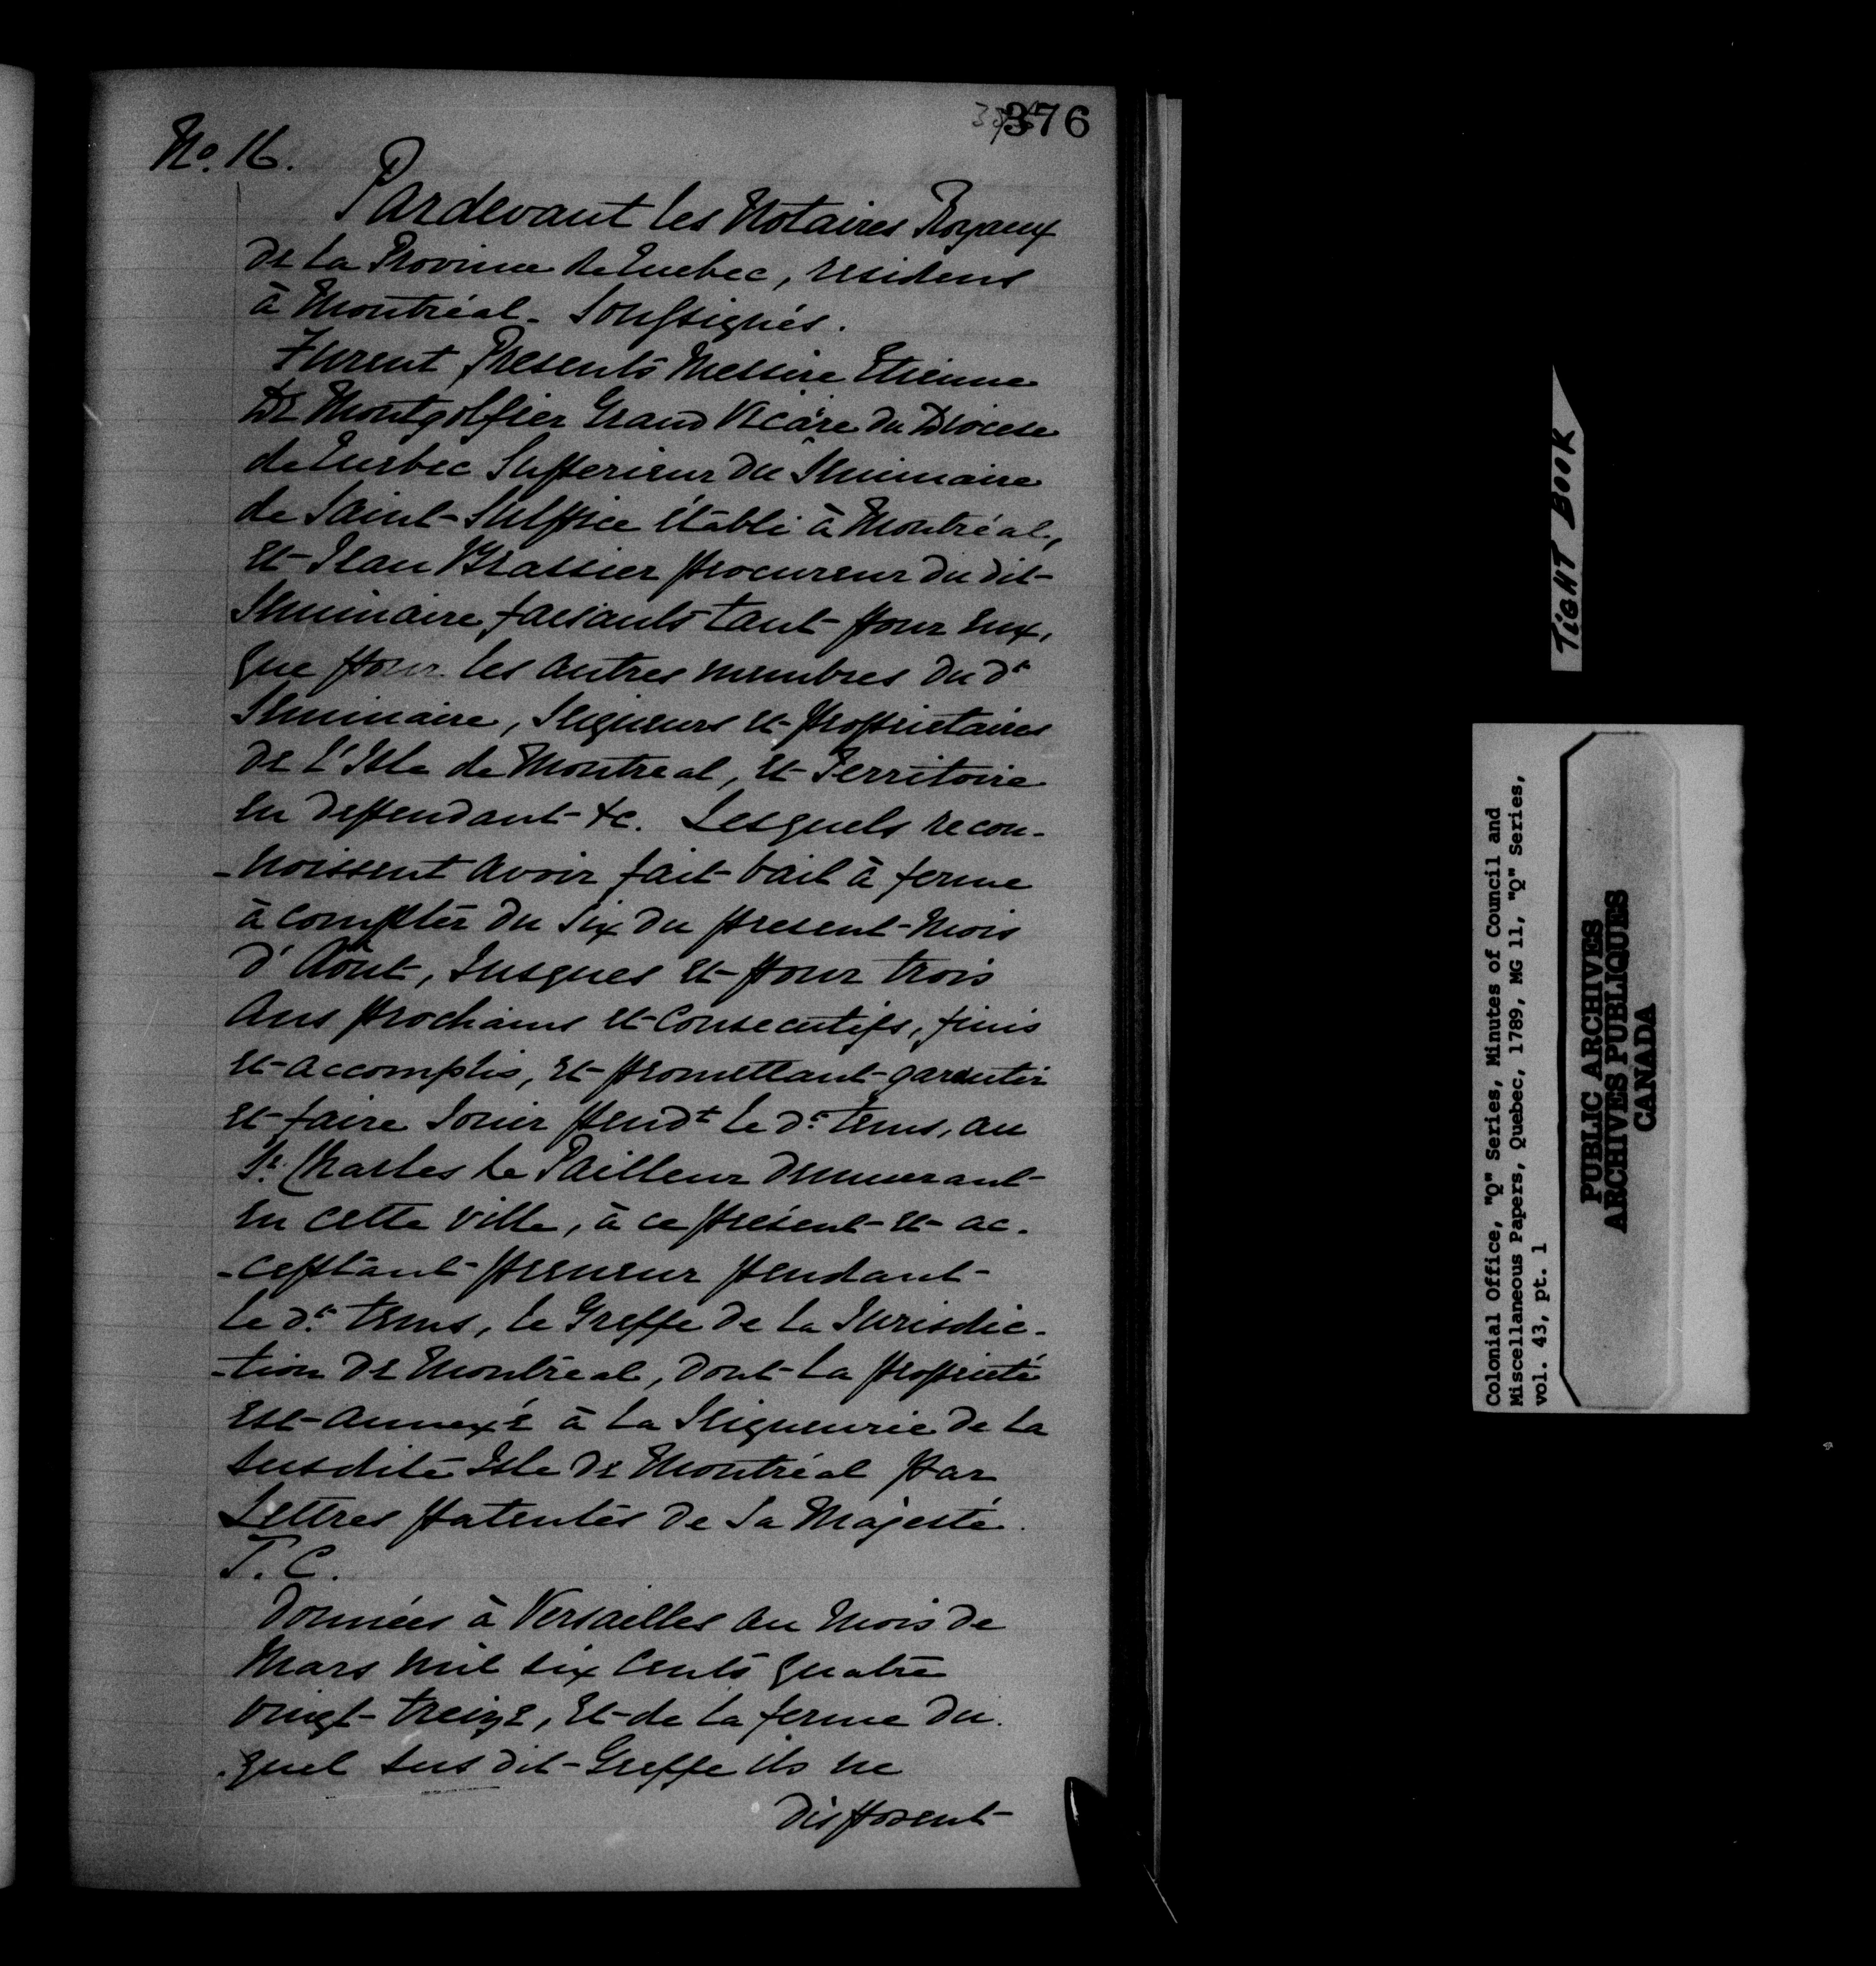 376
No. 16.
Pardevant les Notaires Royaux
de la Province de Quebec, residens
à Montréal. Soussignés.
Furent Presents Messire Etienne
De Montgolfier Grand Vicare du Diocese
de Quebec Superieur du Seminaire
de Saint-Sulpice établi à Montréal,
et Jean Brassier procureur du dit
Seminaire faisants tant pour eux,
que pour les autres membres du dt
Seminaire, Seigneurs et proprietaires
de l'Isle de Montreal, et Territoire
en dependant &c. Lesquels recon-
-noissent avoir fait bail à ferme
à compter du Six du present Mois
d'Août, Jusques et pour trois
Ans prochains et Consecutifs, finis
et accomplis, et promettant garentir
et faire Jouir pendt le dt. tems, au
Sr. Charles le Pailleur demeurant
en cette ville, à ce présent et ac-
-ceptant preneur pendant
le dt. tems, le Greffe de la Jurisdic-
-tion de Montréal, dont la proprieté
est annexé à la Seigneurie de la
susdite Isle de Montréal par
Lettres patentes de Sa Majesté
T. C.
Données à Versailles au mois de
Mars mil six cents quatre
vingt treize, et de la ferme du-
-quel sus dit Greffe ils ne
disposent
TIGHT BOOK
Colonial Office, "Q" Series, Minutes of Council and
Miscellaneous Papers, Quebec, 1789, MG 11, "Q" Series,
vol. 43, pt. 1
PUBLIC ARCHIVES
ARCHIVES PUBLIQUES
CANADA